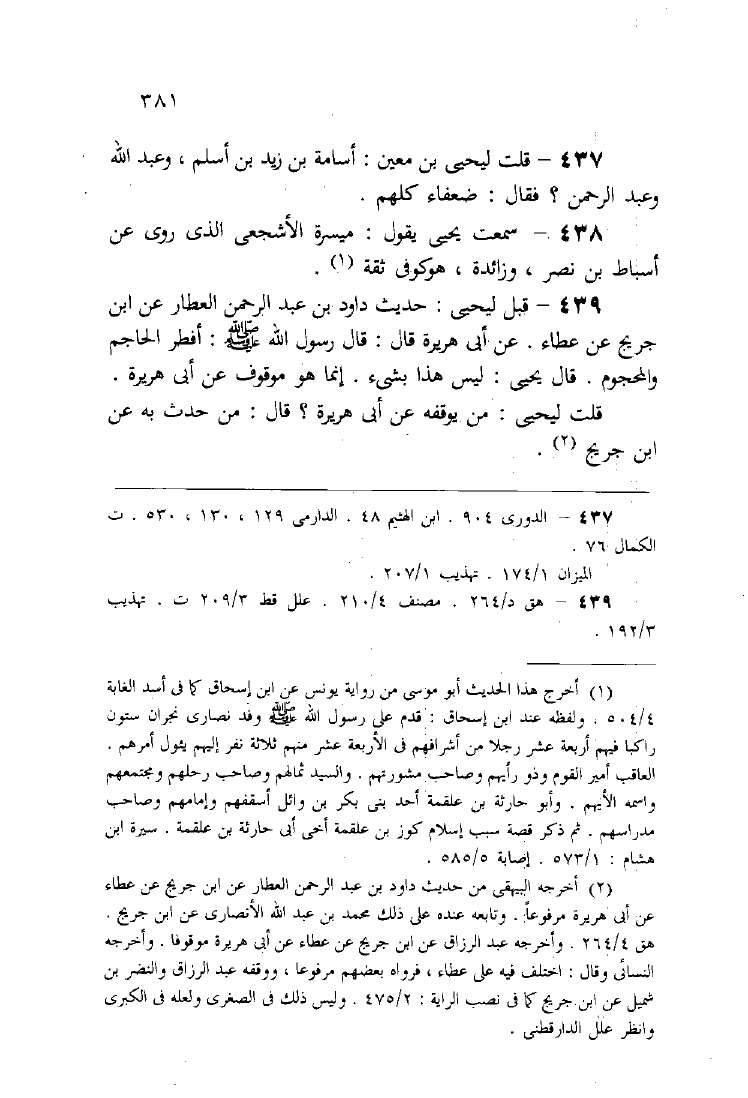 ٣٨١
٤٣٧ – قلت ليحيى بن معين : أسامة بن زيد بن أسلم ، وعبد الله
وعبد الرحمن ؟ فقال : ضعفاء كلهم .
٤٣٨ – سمعت يحيى يقول : ميسرة الأشجعى الذى روى عن
أسباط بن نصر ، وزائدة ، هوكوفى ثقة (١) .
٤٣٩ – قبل ليحيى : حديث داود بن عبد الرحمن العطار عن ابن
جريج عن عطاء . عن أبى هريرة قال : قال رسول الله ﷺ : أفطر الحاجم
والمحجوم . قال يحيى : ليس هذا بشىء . إنما هو موقوف عن أبى هريرة .
قلت ليحيى : من يوقفه عن أبى هريرة ؟ قال : من حدث به عن
ابن جريج (٢) .
٤٣٧ – الدورى ٩٠٤ . ابن الهثيم ٤٨ . الدارمى ١٢٩ ، ١٣٠ ، ٥٣٠ . ت
الكمال ٧٦ .
الميزان ١٧٤/١ . تهذيب ٢٠٧/١ .
٤٣٩ – هق د/٢٦٤ . مصنف ٢١٠/٤ . علل قط ٢٠٩/٣ ت . تهذيب
١٩٢/٣ .
(١) أخرج هذا الحديث أبو موسى من رواية يونس عن ابن إسحاق كما فى أسد الغابة
٥٠٤/٤ . ولفظه عند ابن إسحاق : قدم على رسول الله ﷺ وفد نصارى نجران ستون
راكبا فيهم أربعة عشر رجلا من أشرافهم فى الأربعة عشر منهم ثلاثة نفر إليهم يئول أمرهم .
العاقب أمير القوم وذو رأيهم وصاحب مشورتهم . والسيد ثمالهم وصاحب رحلهم ومجتمعهم
واسمه الأيهم . وأبو حارثة بن علقمة أحد بنى بكر بن وائل أسقفهم وإمامهم وصاحب
مدراسهم . ثم ذكر قصة سبب إسلام كوز بن علقمة أخى أبى حارثة بن علقمة . سيرة ابن
هشام : ٥٧٣/١ . إصابة ٥٨٥/٥ .
(٢) أخرجه البيهقى من حديث داود بن عبد الرحمن العطار عن ابن جريج عن عطاء
عن أبى هريرة مرفوعاً . وتابعه عنده على ذلك محمد بن عبد الله الأنصارى عن ابن جريج .
هق ٢٦٤/٤ . وأخرجه عبد الرزاق عن ابن جريج عن عطاء عن أبى هريرة موقوفا . وأخرجه
النسائى وقال : اختلف فيه على عطاء ، فرواه بعضهم مرفوعا ، ووقفه عبد الرزاق والنضر بن
شميل عن ابن جريج كما فى نصب الراية : ٤٧٥/٢ . وليس ذلك فى الصغرى ولعله فى الكبرى
وانظر علل الدارقطنى .